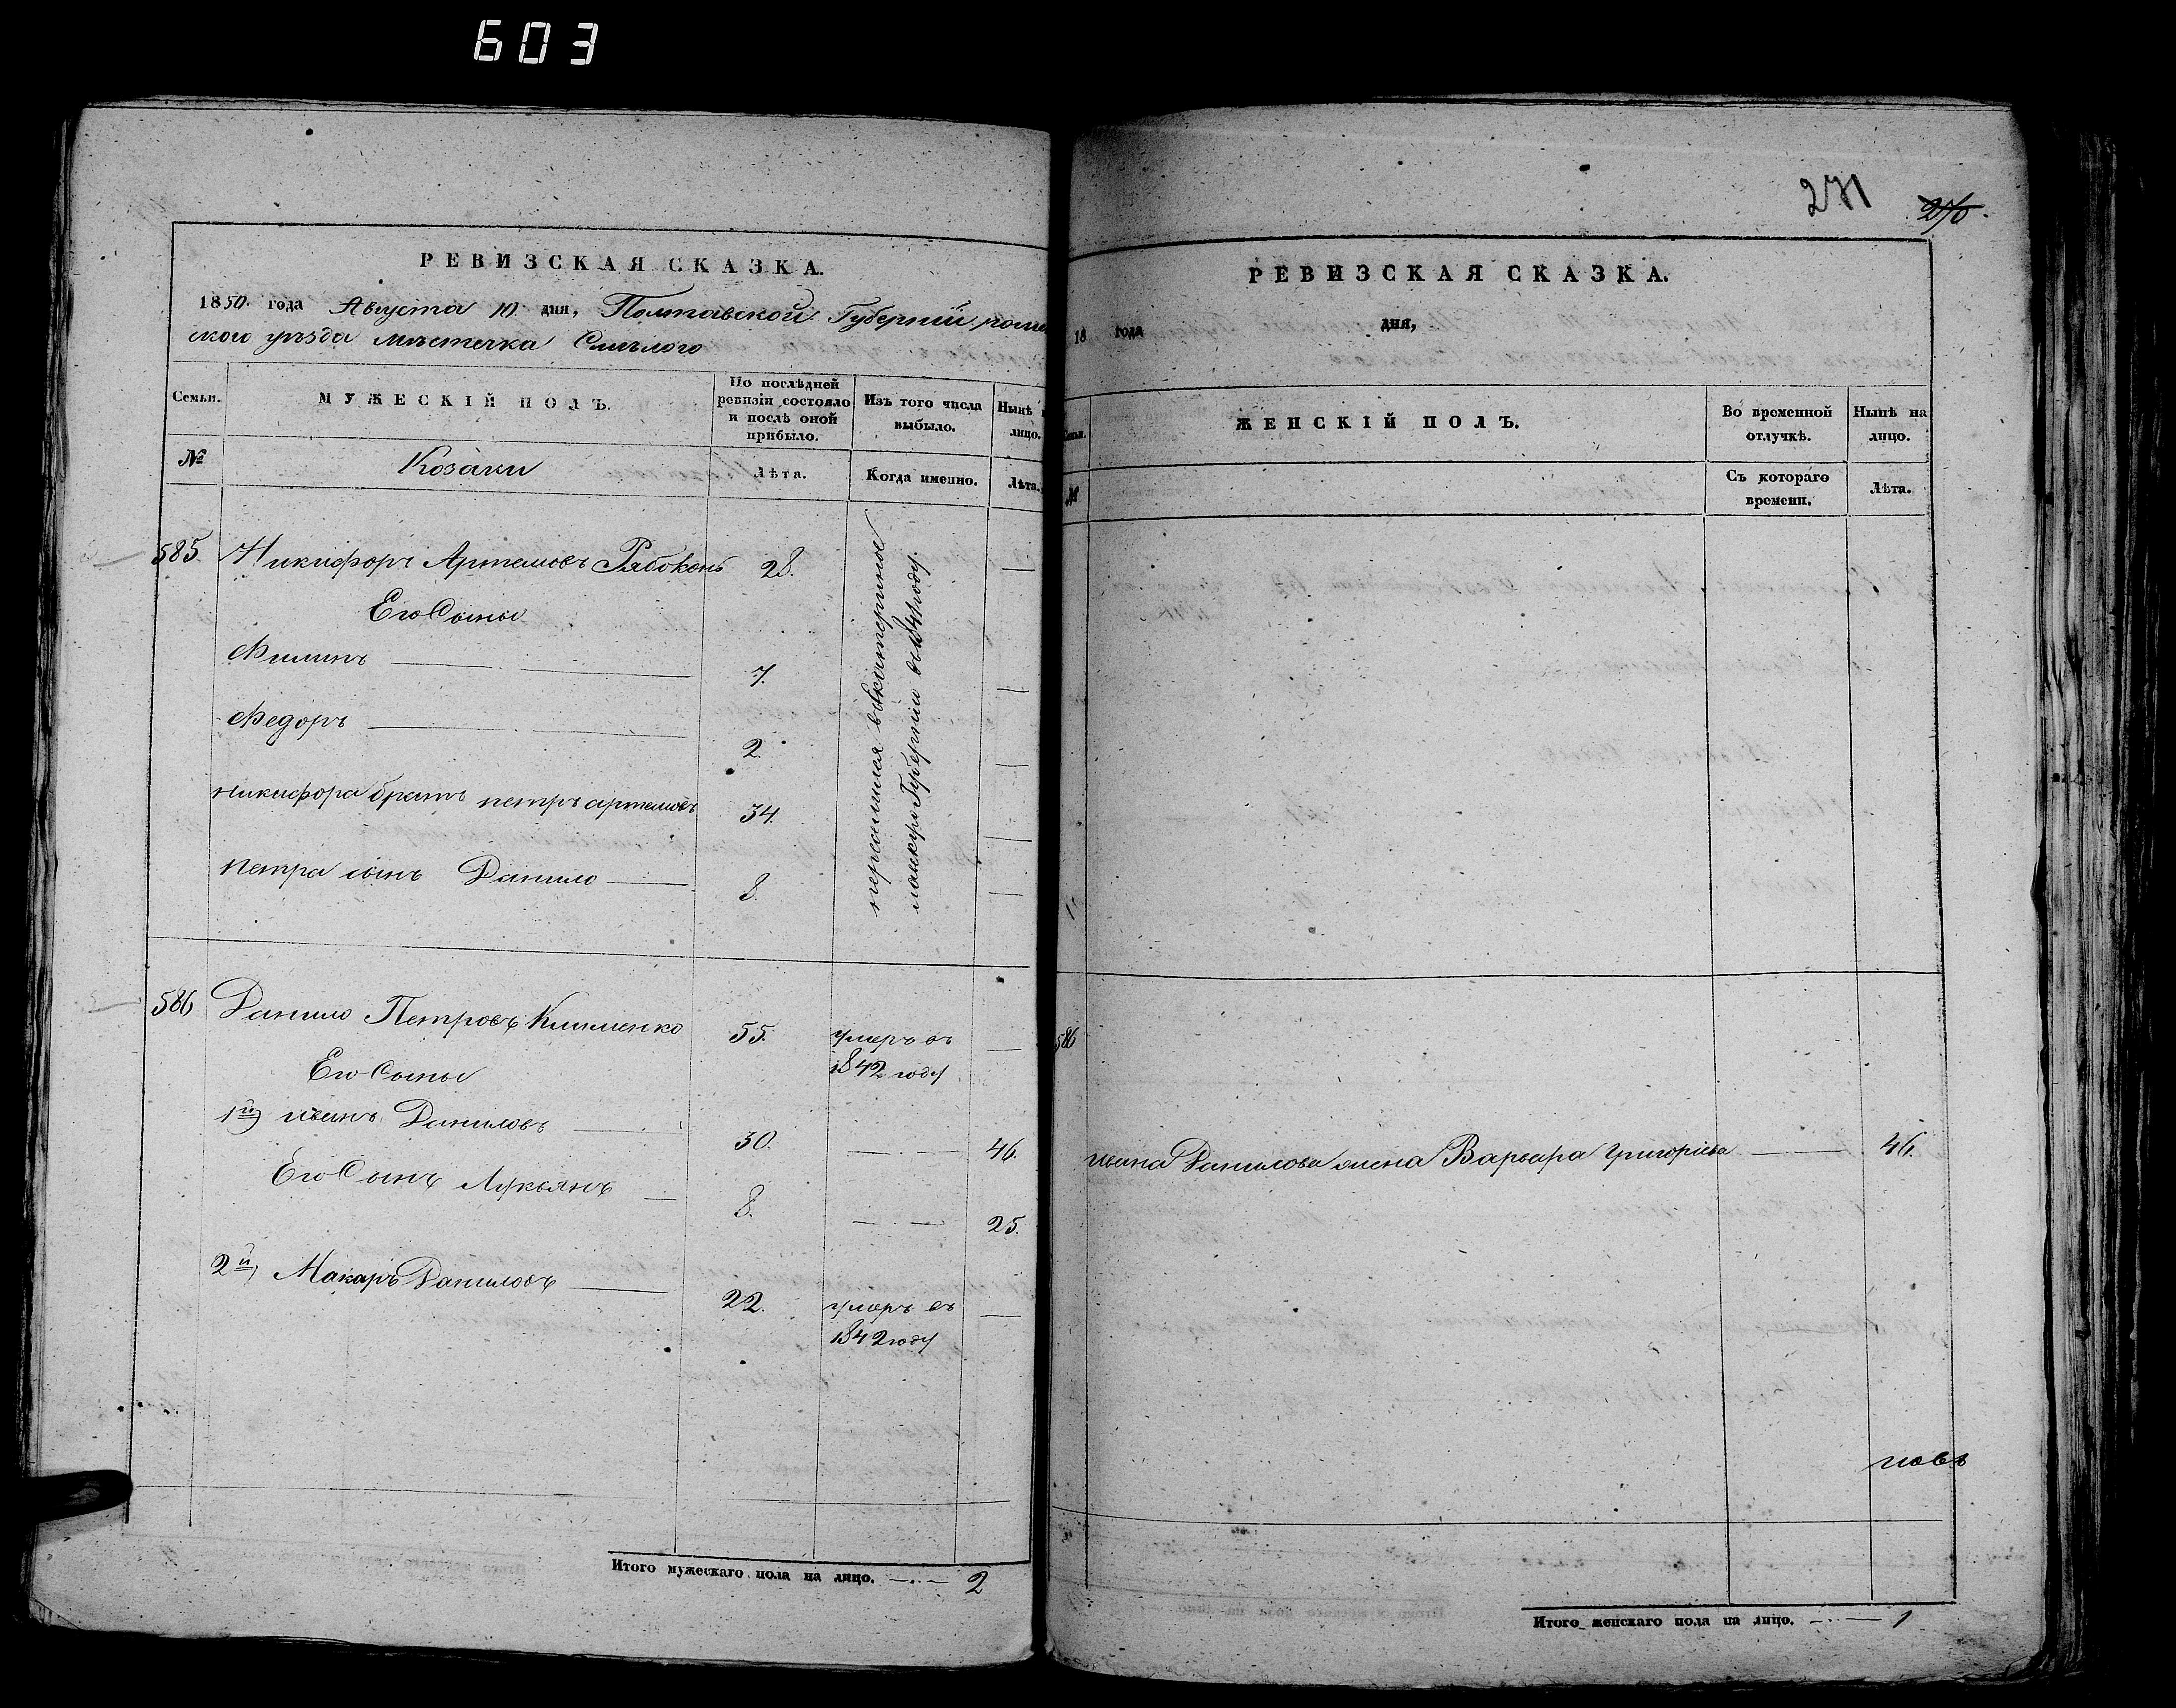 603
РЕВИЗСКАЯ СКАЗКА.
1850 года Августа 10 дня, Полтавской Губерніи, роме
ского уѣзда мѣстечка Смѣлого
Семьи.
МУЖЕСКІЙ ПОЛЪ.
По послѣдней ревизіи состояло и послѣ оной прибыло.
Изъ того числа выбыло.
Нынѣ
лицо.
№
Козаки
Лѣта.
Когда именно.
Лѣта.
585 Никифоръ Артемовъ Рябоконь 28. —
Его Сыны
Филипъ — 7. —
Федоръ — 2. —
никифора братъ петръ артемовъ 34. —
петра сынъ Данило — 8. —
переселился въ Екатерино
славскую Губернію въ 1841 году.
586 Данило Петровъ Клименко 55. умеръ въ —
1842 году
Его Сыны
1й иванъ Даниловъ — 30. — 46.
Его Сынъ Лукьянъ — 8. — 25.
2й, Макаръ Даниловъ — 22. умеръ въ —
1842 году
Итого мужескаго пола на лицо. — 2
271 270.
РЕВИЗСКАЯ СКАЗКА.
18 года дня,
ЖЕНСКІЙ ПОЛЪ.
Во временной отлучкѣ.
Нынѣ на лицо.
№
Съ котораго времени.
Лѣта.
586
ивана Данилова жена Варвара Григоріева — 46.
Итого женскаго пола на лицо. — 1